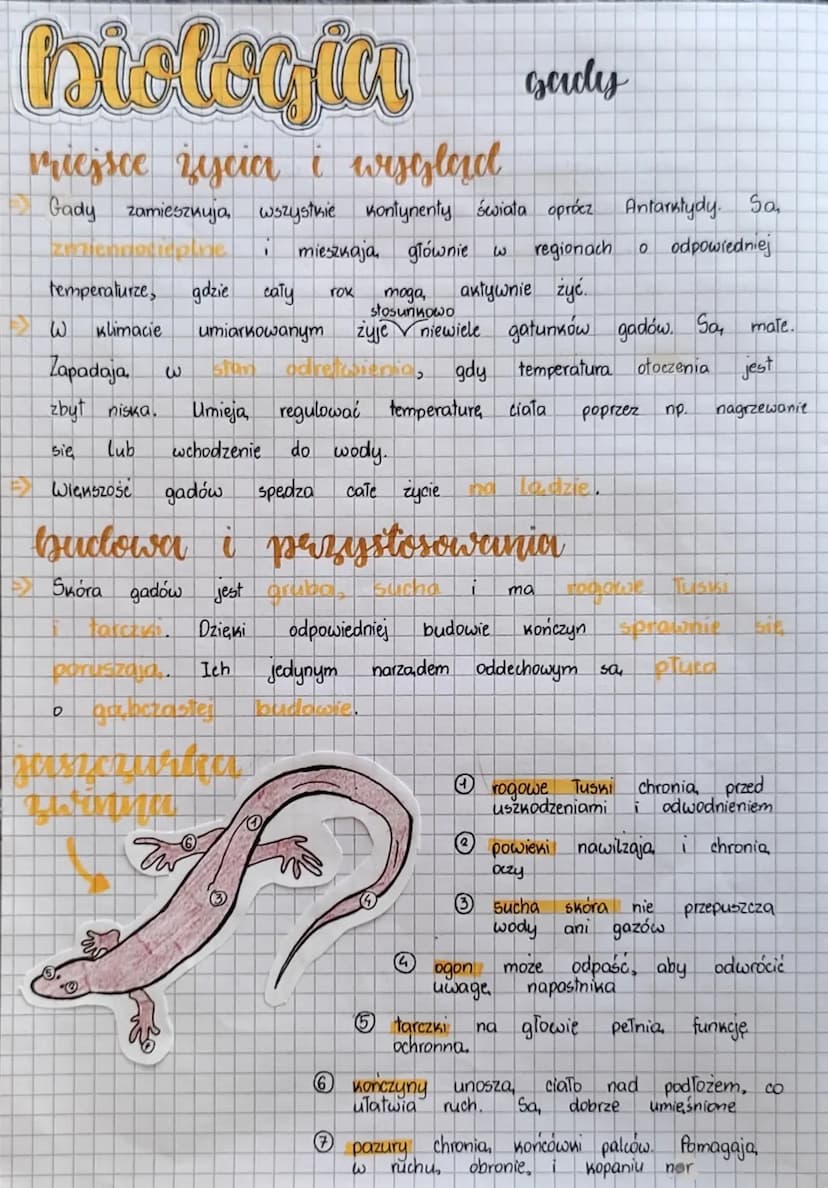 biologia
gady
miejsce życia i wygląd
⇒ Gady zamieszkują wszystkie kontynenty świata oprócz Antarktydy. Są
zmiennocieplne i mieszkają głównie w regionach o odpowiedniej
temperaturze, gdzie cały rok mogą aktywnie żyć.
stosunkowo
⇒ W klimacie umiarkowanym żyje niewiele gatunków gadów. Są małe.
Zapadają w stan odrętwienia, gdy temperatura otoczenia jest
zbyt niska. Umieją regulować temperaturę ciała poprzez np. nagrzewanie
się lub wchodzenie do wody.
⇒ Większość gadów spędza całe życie na lądzie.
budowa i przystosowania
⇒ Skóra gadów jest gruba, sucha i ma rogowe łuski
i tarczki. Dzięki odpowiedniej budowie kończyn sprawnie się
poruszają. Ich jedynym narządem oddechowym są płuca
o gąbczastej budowie.
jaszczurka
zwinna
① rogowe łuski chronią przed
uszkodzeniami i odwodnieniem
② powieki nawilżają i chronią
oczy
③ sucha skóra nie przepuszcza
wody ani gazów
④ ogon może odpaść, aby odwrócić
uwagę napastnika
⑤ tarczki na głowie pełnią funkcję
ochronną.
⑥ kończyny unoszą ciało nad podłożem, co
ułatwia ruch. Są dobrze umięśnione
⑦ pazury chronią końcówki palców. Pomagają
w ruchu, obronie, i kopaniu nor
①
⑥
③
④
⑤
②
⑦